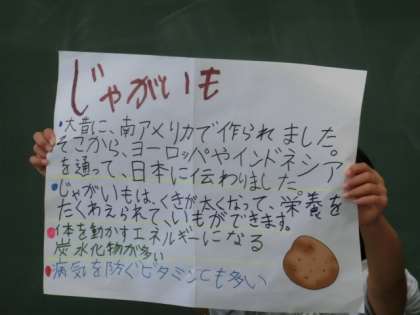 じゃがいも
・大昔に、南アメリカで作られました
そこから、ヨーロッパやインドネシア
を通って、日本に伝わりました
・じゃがいもは、くきが太くなって、栄養を
たくわえられて、いもができます。
・体を動かすエネルギーになる
炭水化物が多い
・病気を防ぐビタミンCも多い